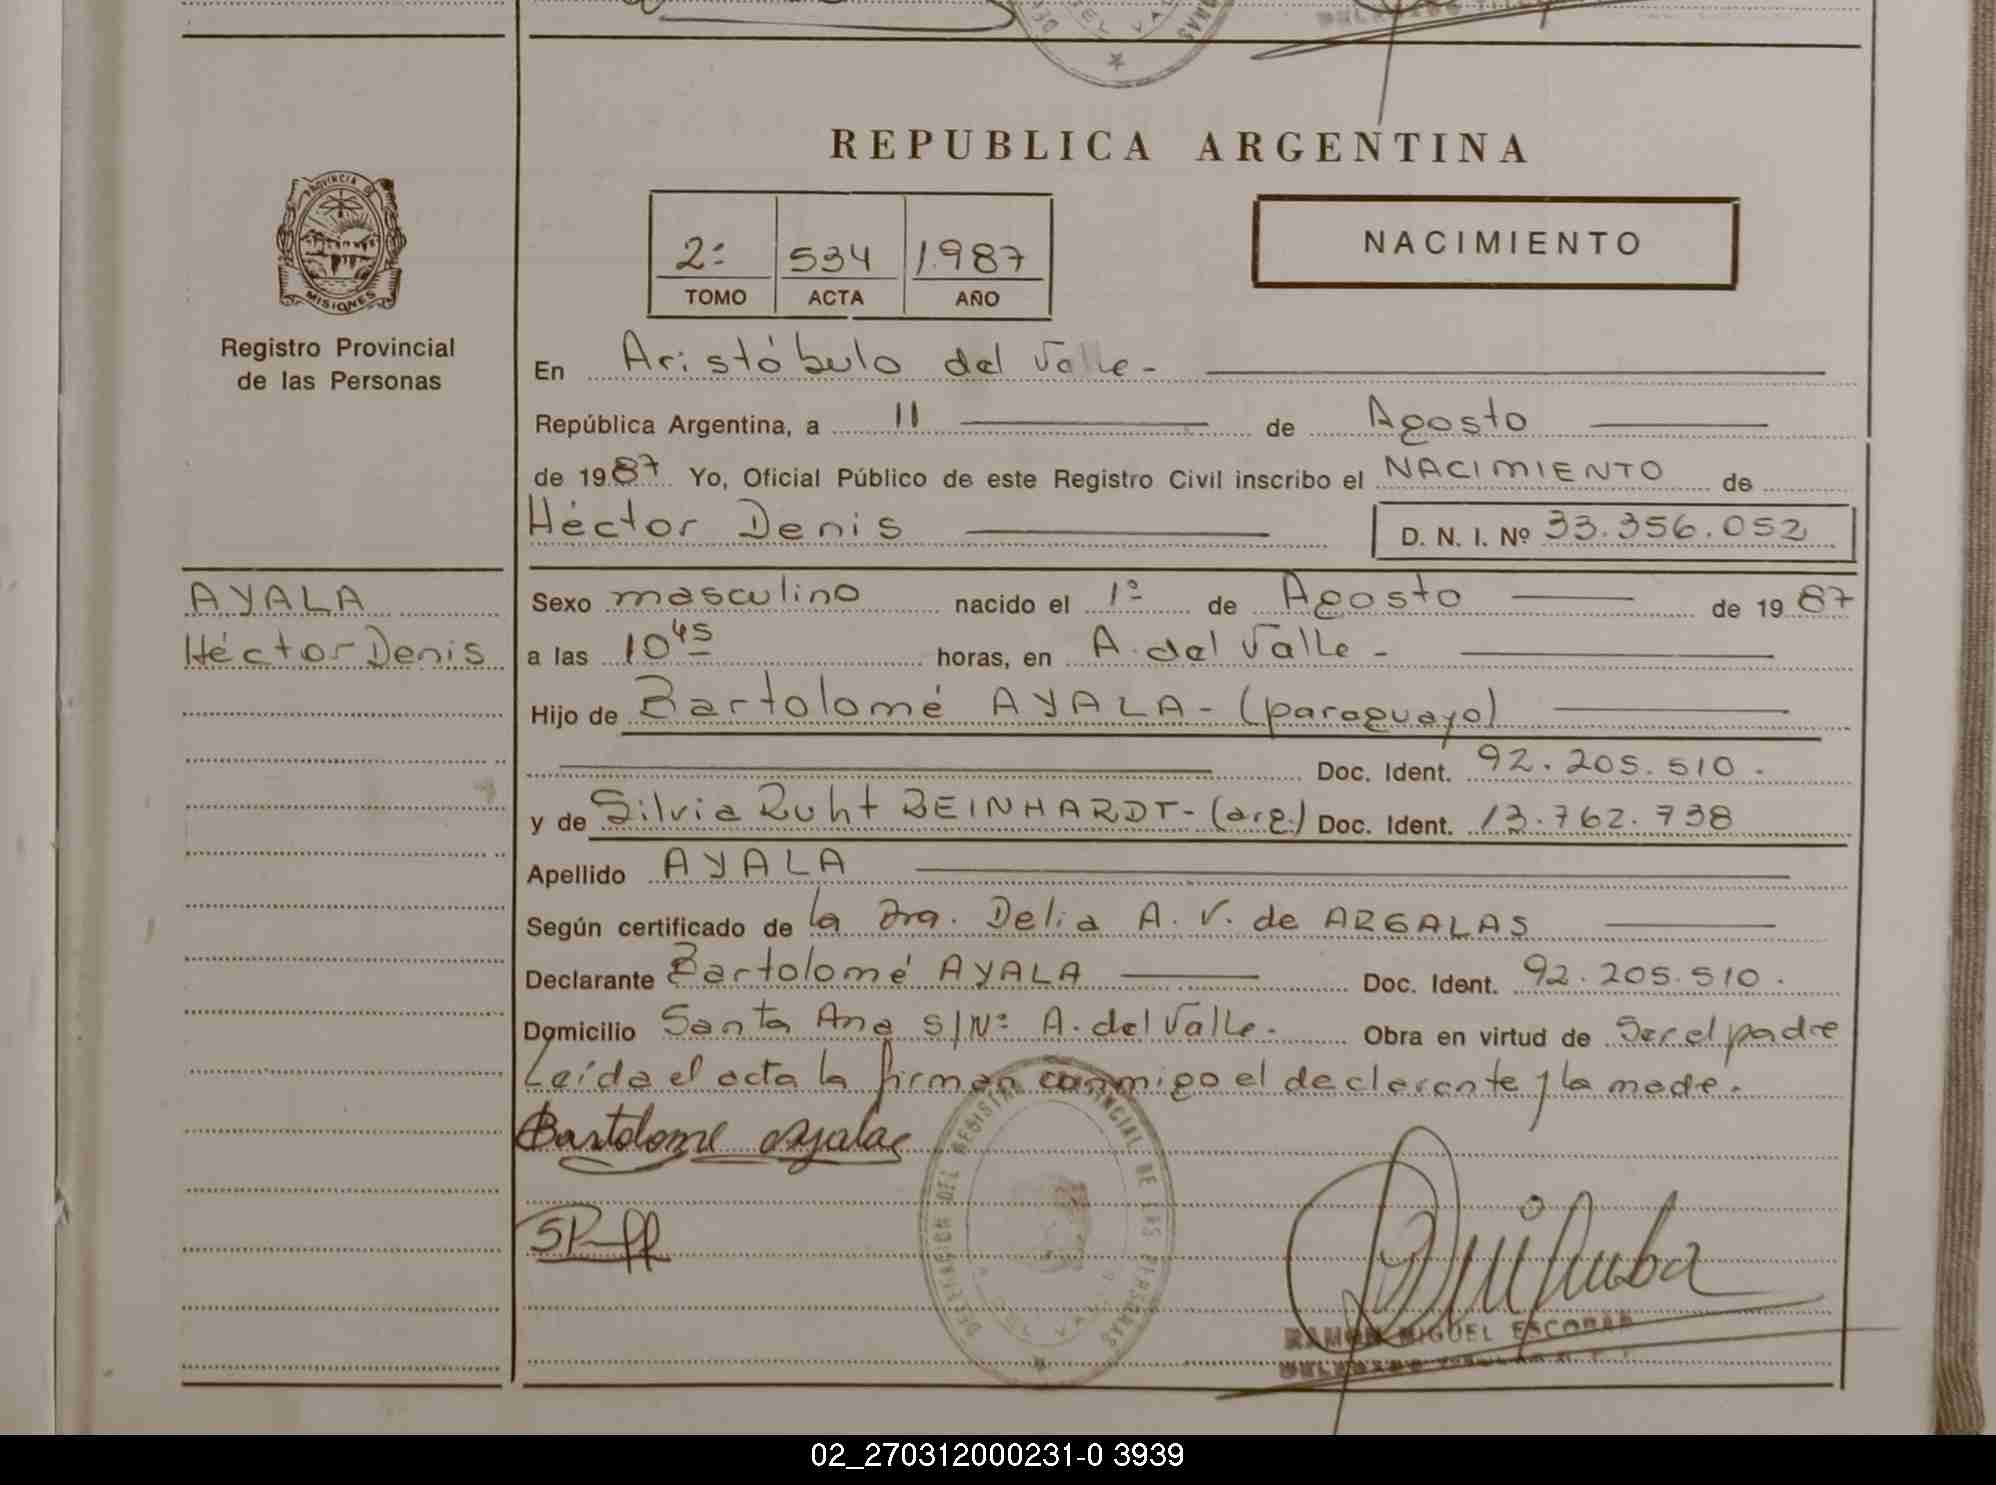 REPUBLICA ARGENTINA
PROVINCIA DE
MISIONES
Registro Provincial
de las Personas
2º 534 1.987
TOMO ACTA AÑO
NACIMIENTO
En Aristóbulo del Valle -
República Argentina, a 11 de Agosto
de 1987 Yo, Oficial Público de este Registro Civil inscribo el NACIMIENTO de
Héctor Denis D. N. I. Nº 33.356.052
AYALA
Héctor Denis
Sexo masculino nacido el 1º de Agosto de 1987
a las 10 45 horas, en A. del Valle -
Hijo de Bartolomé AYALA - (paraguayo)
Doc. Ident. 92.205.510.
y de Silvia Ruht REINHARDT - (arg.) Doc. Ident. 13.762.738
Apellido AYALA
Según certificado de la Dra. Delia A. V. de ARGALAS
Declarante Bartolomé AYALA Doc. Ident. 92.205.510.
Domicilio Santa Ana S/Nº A. del Valle. Obra en virtud de Ser el padre
Leída el acta la firman conmigo el declarante y la madre.
Bartolome Ayala
DELEGACION DEL REGISTRO PROVINCIAL DE LAS PERSONAS
RAMON MIGUEL ESCOBAR
02_270312000231-0 3939